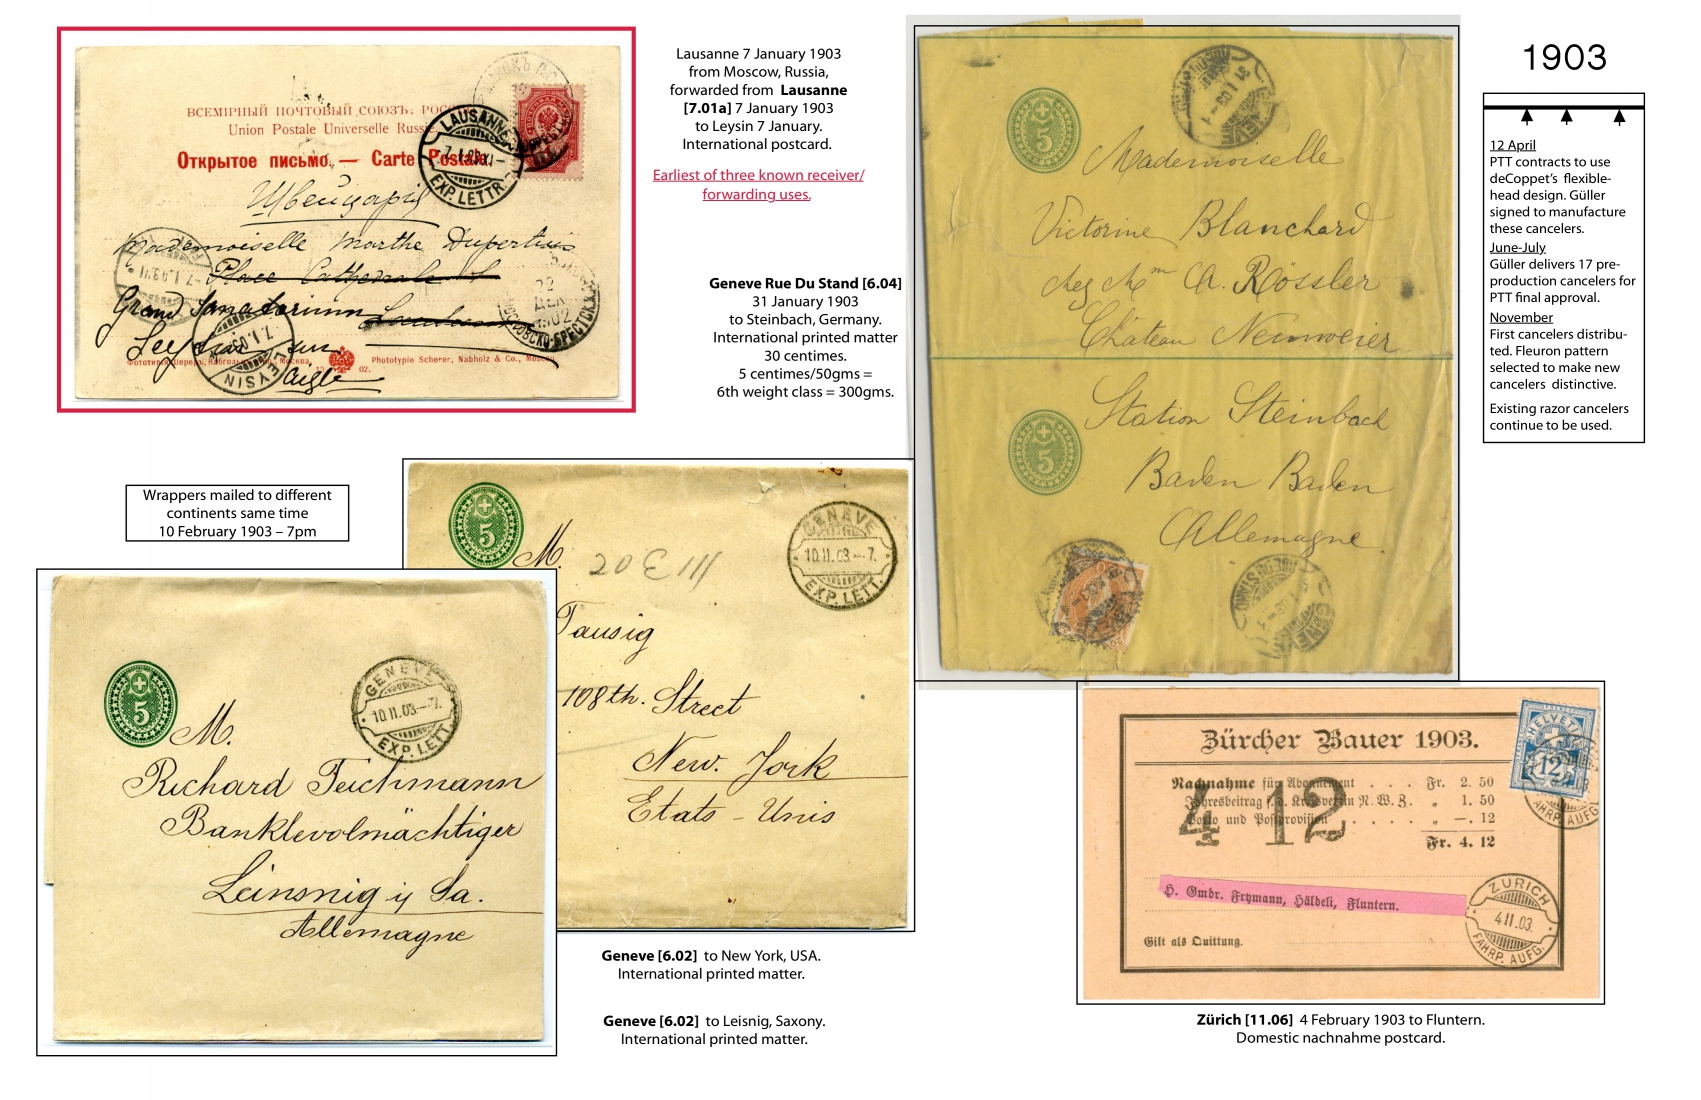 ВСЕМІРНЫЙ ПОЧТОВЫЙ СОЮЗЪ. РОССІЯ
Union Postale Universelle Russie.
Открытое письмо. — Carte Postale.
LAUSANNE
7.I.03.XI–
EXP. LETTR.
Швейцарія
Mademoiselle Marthe Dupertuis
Place Cathédrale
Grand Sanatorium
Leysin sur
Aigle
7.I.03
LEYSIN
22
ДЕК
1902
МОСКОВСКО-БРЕСТСК.
Phototypie Scherer, Nabholz & Co., Moscou
02.
Lausanne 7 January 1903
from Moscow, Russia,
forwarded from Lausanne
[7.01a] 7 January 1903
to Leysin 7 January.
International postcard.
Earliest of three known receiver/
forwarding uses.
Geneve Rue Du Stand [6.04]
31 January 1903
to Steinbach, Germany.
International printed matter
30 centimes.
5 centimes/50gms =
6th weight class = 300gms.
5
Mademoiselle
Victorine Blanchard
chez Mm A. Rössler
Château Neuweier
5
Station Steinbach
Baden Baden
Allemagne.
1903
12 April
PTT contracts to use
deCoppet's flexible-
head design. Güller
signed to manufacture
these cancelers.
June-July
Güller delivers 17 pre-
production cancelers for
PTT final approval.
November
First cancelers distribu-
ted. Fleuron pattern
selected to make new
cancelers distinctive.
Existing razor cancelers
continue to be used.
Wrappers mailed to different
continents same time
10 February 1903 – 7pm
5
GENÈVE
10.II.03.–7.
EXP. LETT.
M. 20 E 111
Tausig
108th. Street
New. York
Etats - Unis
5
GENÈVE
10.II.03.–7.
EXP. LETT.
M.
Richard Teichmann
Banklevolmächtiger
Leinsnig i/ Sa.
Allemagne
Geneve [6.02] to New York, USA.
International printed matter.
Geneve [6.02] to Leisnig, Saxony.
International printed matter.
HELVETIA
12
FAHRP. AUFG.
Zürcher Bauer 1903.
Nachnahme für Abonnement . . . Fr. 2. 50
Jahresbeitrag f. d. Kr. Verein N. W. Z. . „ 1. 50
Porto und Postprovision . . . . . „ —. 12
Fr. 4. 12
4 12
H. Gmdr. Frymann, Häldeli, Fluntern.
Gilt als Quittung.
ZÜRICH
4.II.03.
FAHRP. AUFG.
Zürich [11.06] 4 February 1903 to Fluntern.
Domestic nachnahme postcard.